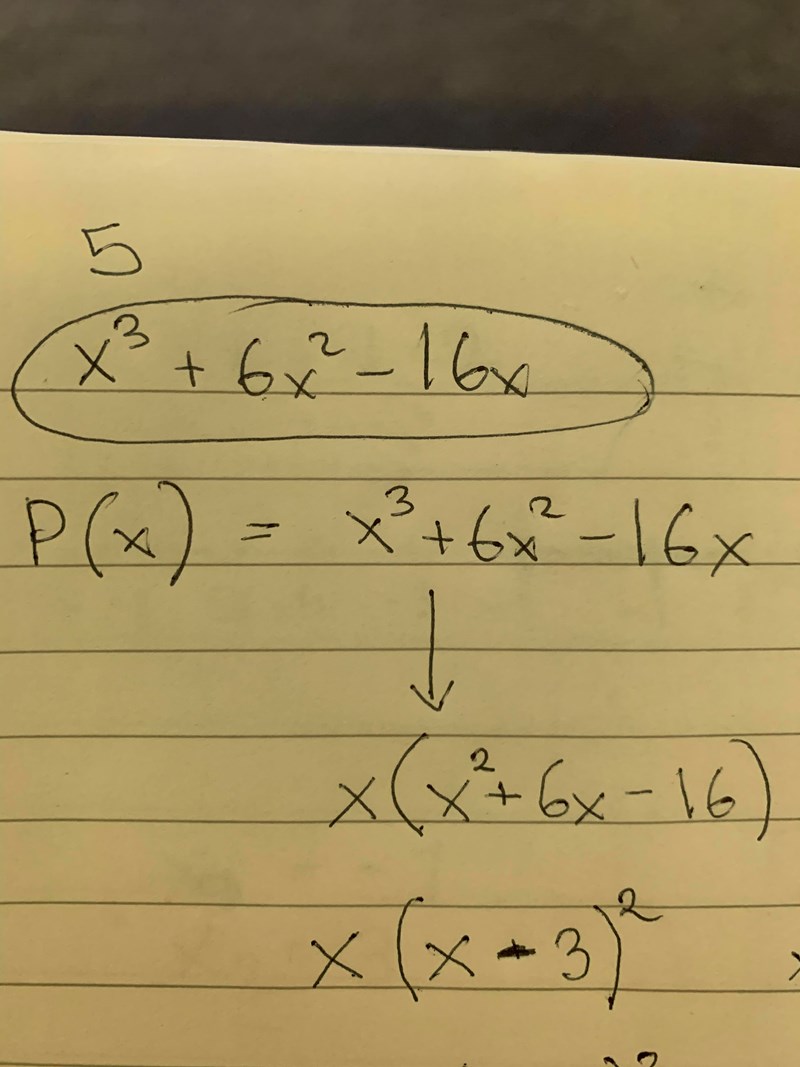 5
x³ + 6x² - 16x
P(x) = x³ + 6x² - 16x
↓
x(x² + 6x - 16)
x(x - 3)²